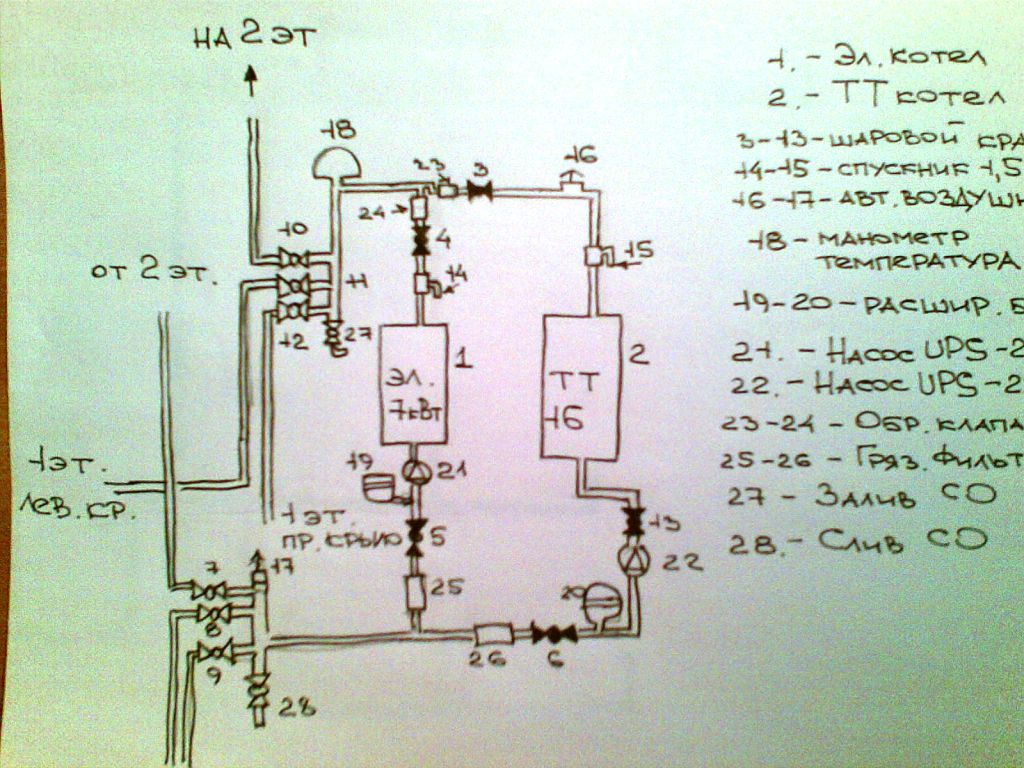 НА 2 ЭТ
18
16
23
3
24
4
10
ОТ 2 ЭТ.
11
14
15
12
27
1
2
ЭЛ.
7кВт
ТТ
16
1 ЭТ.
ЛЕВ. КР.
19
21
1 ЭТ.
ПР. КРЫЛО
5
13
17
22
7
25
20
8
9
26
6
28
1. - Эл. котел
2. - ТТ котел
3-13 - шаровой кра
14-15 - спускник 1,5
16-17 - авт. воздушн
18 - манометр
температура
19-20 - расшир. б
21. - Насос UPS-2
22. - Насос UPS-2
23-24 - Обр. клапа
25-26 - Гряз. фильт
27 - Залив СО
28. - Слив СО